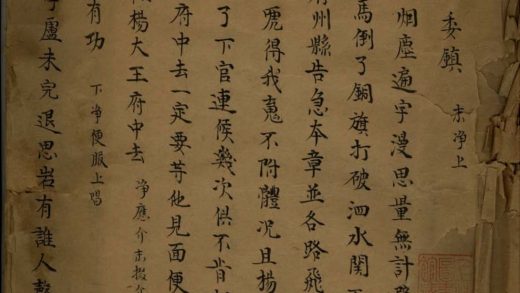 委鎮 末淨上
烟塵遍宇漫思量無計
馬倒了銅旗打破泗水関
州縣告急本章並各路飛
唬得我䰟不附體况且揚
了下官連候幾次俱不肯
府中去一定要等他見面便
楊大王府中去 淨應介
有功 下淨便服上唱
廬未完退思岩有誰人